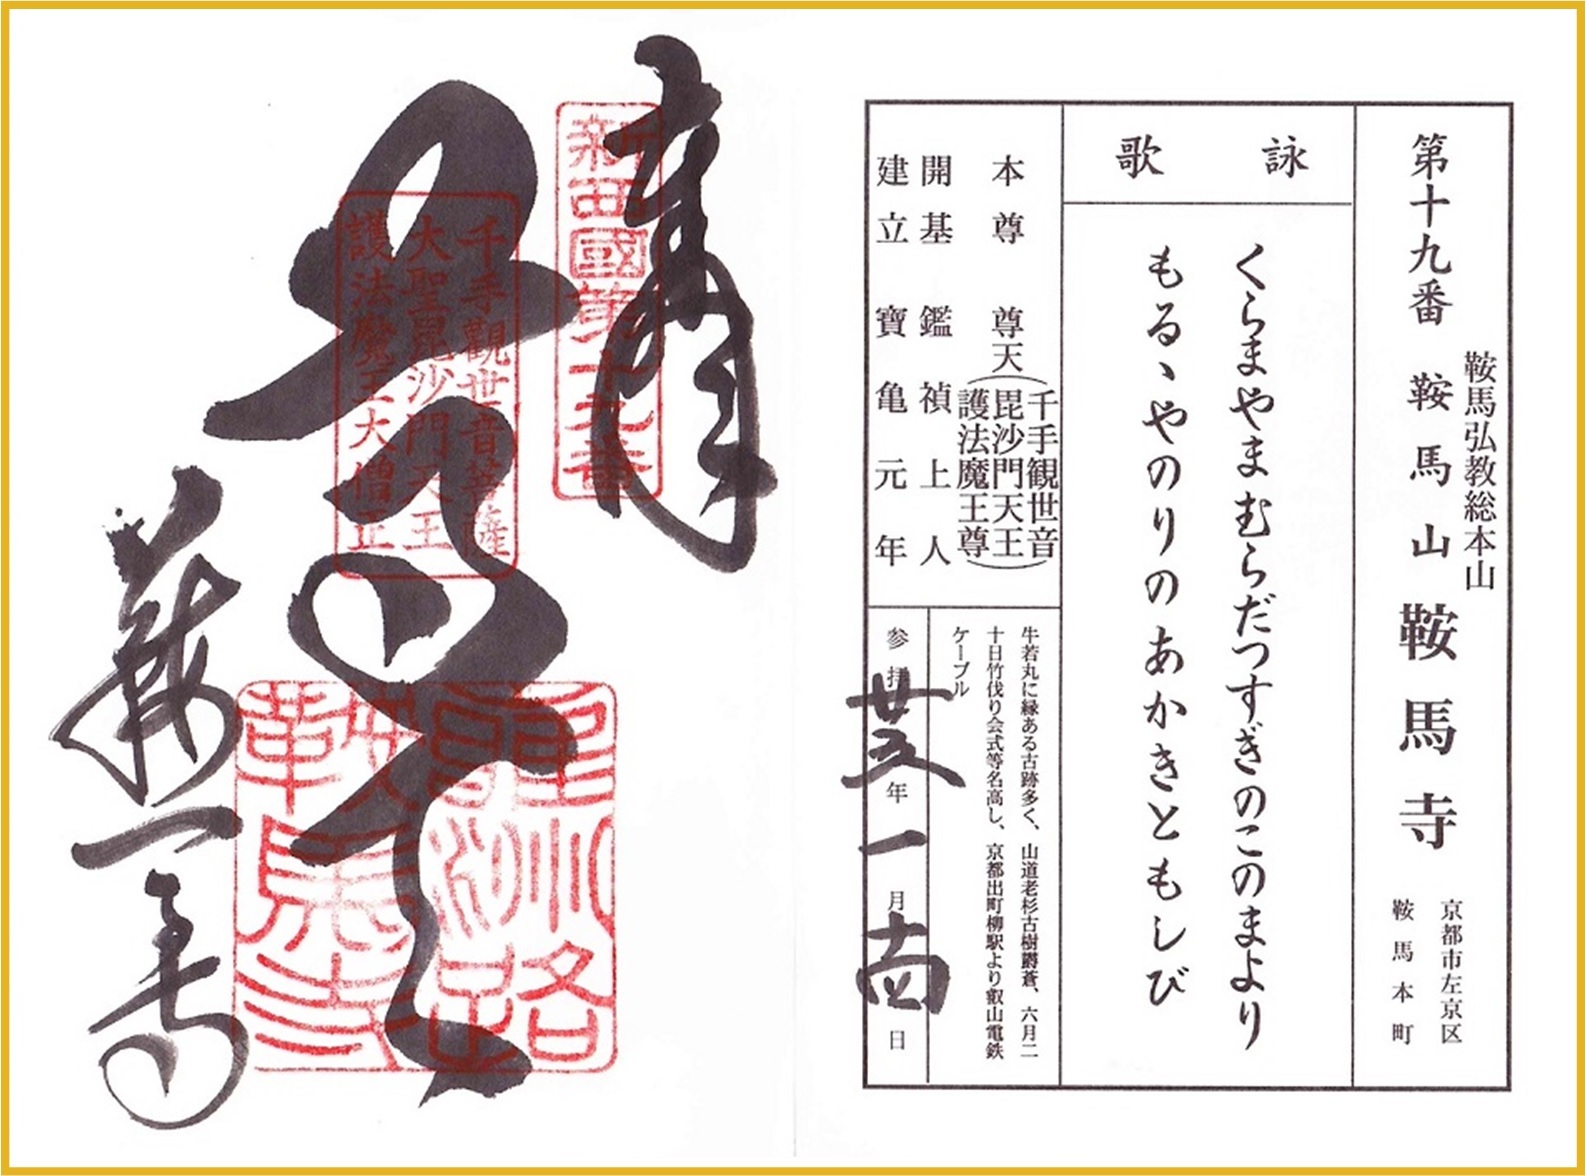 鞍馬弘教総本山
第十九番 鞍馬山 鞍馬寺
京都市左京区
鞍馬本町
詠歌
くらまやまむらだつすぎのこのまより
もるヽやのりのあかきともしび
本尊 尊天(千手観世音
毘沙門天王
護法魔王尊)
開基 鑑禎上人
建立 寶亀元年
牛若丸に縁ある古跡多く、山道老杉古樹欝蒼、六月二
十日竹伐り会式等名高し、京都出町柳駅より叡山電鉄
ケーブル
参拝廿五年一月十四日
奉拝
新西國第十九番
尊天
千手觀世音菩薩
大聖毘沙門天王
護法魔王大僧正
州路
鞍馬寺
鞍馬寺